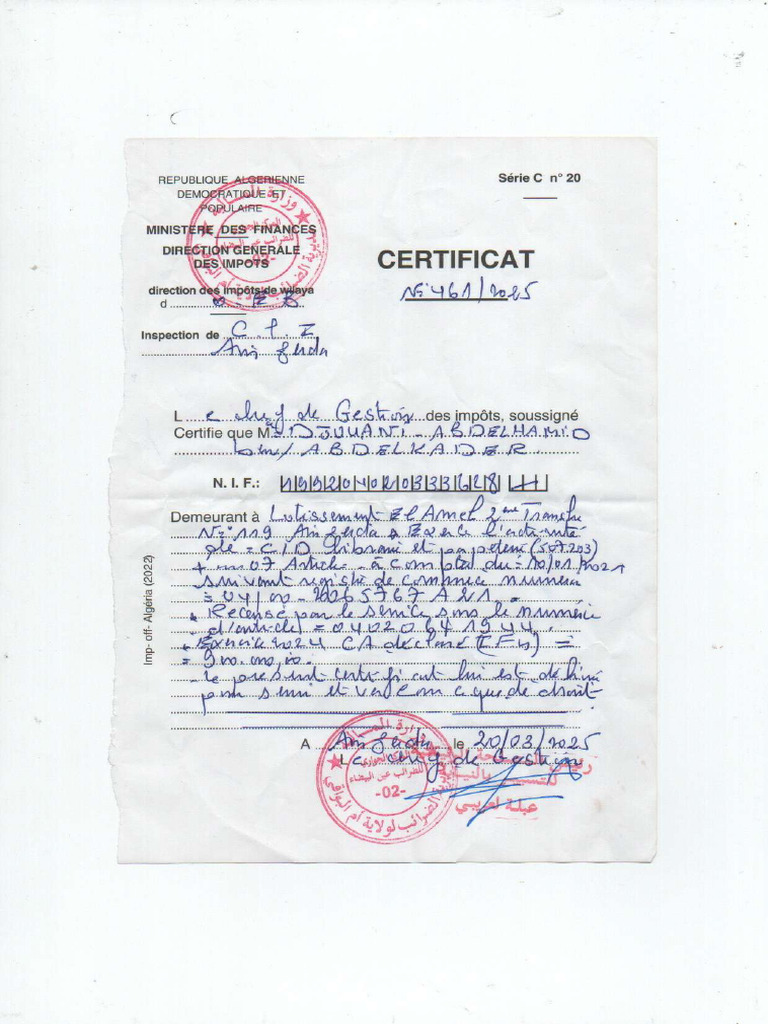 REPUBLIQUE ALGERIENNE
DEMOCRATIQUE ET
POPULAIRE
Série C n° 20
MINISTERE DES FINANCES
DIRECTION GENERALE
DES IMPOTS
CERTIFICAT
N° 461/2025
direction des impôts de wilaya
d O - E B
Inspection de C.P.I
Ain
L e chef de Gestion des impôts, soussigné
Certifie que M DJOUANI - ABDELHAMID
ben/ ABDELKADER
N. I. F.:
Demeurant à Lotissement El Amel 2ème Tranche
N° 119 Ain Exerce l'activité
de = librairie et papeterie (507203)
+ 07 Article - à compter du = 10/01/2021
suivant registre de commerce numero
= 04/00 - A 21.
Recensé par le service sous le numero
d'article = 04020641944.
Exercice 2024 CA déclaré =
= 900.000,00.
- Le présent certificat lui est délivré
pour servir et valoir ce que de droit.
Imp- off- Algéria (2022)
A Ain le 20/03/2025
Le chef de Gestion
وزارة المالية
المركز الجواري
للضرائب عين البيضاء
-02-
الضرائب لولاية أم البواقي
عبلة لعريبي